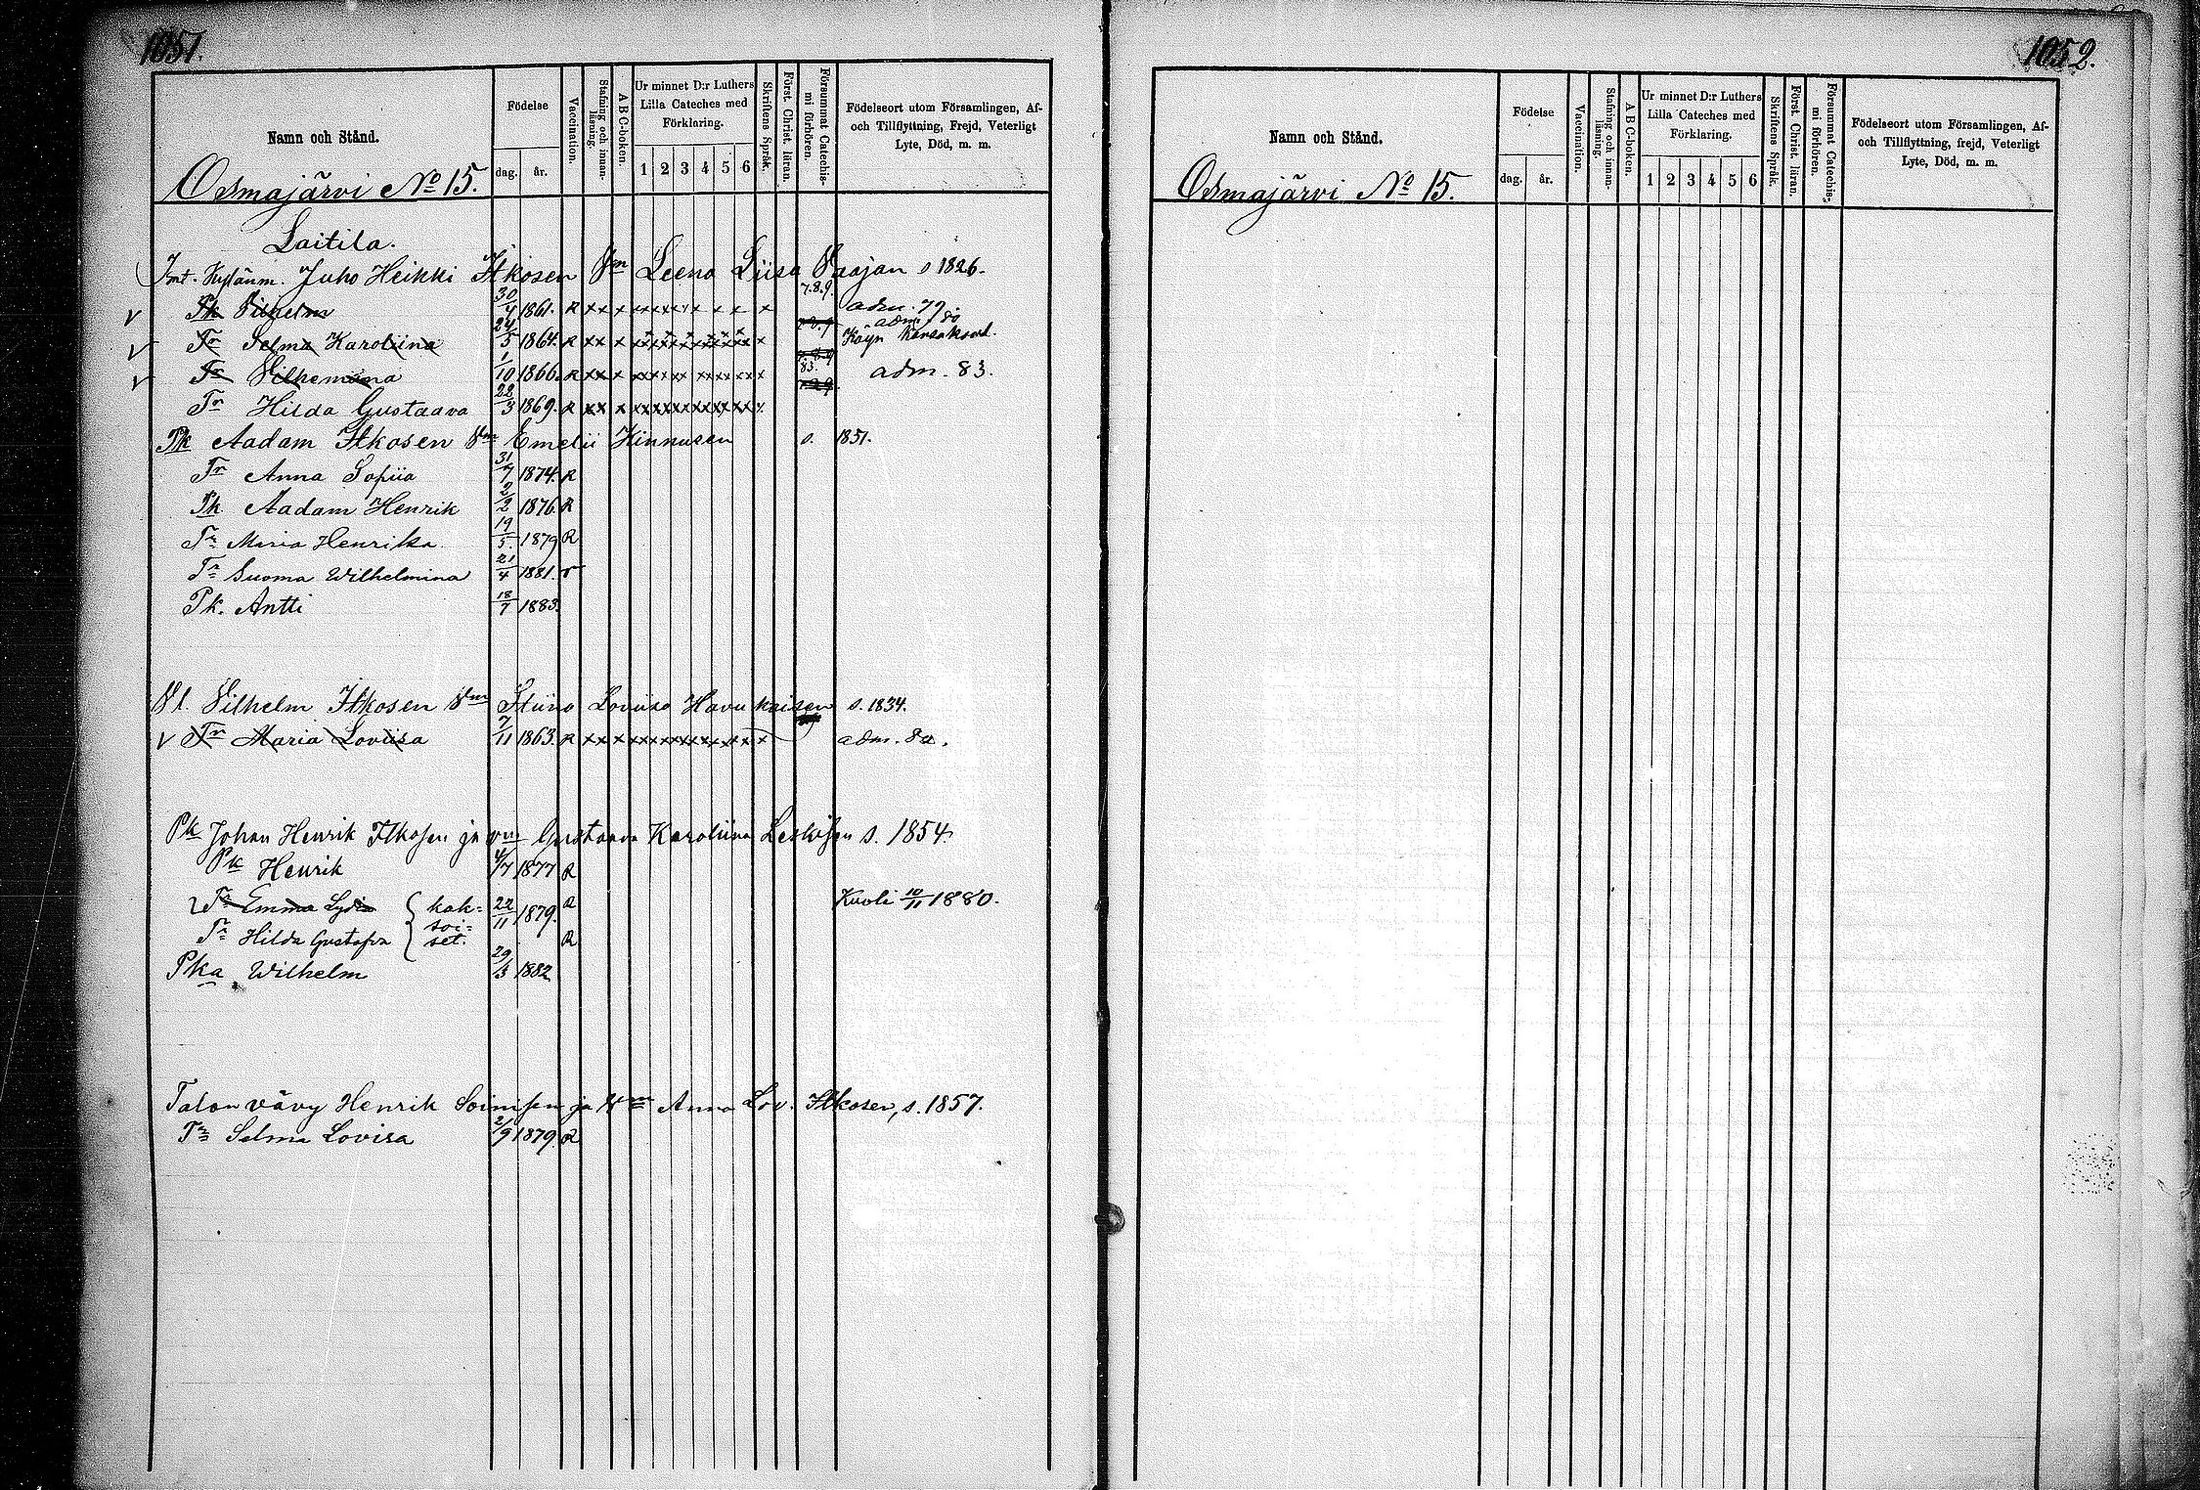 1051.
Namn och Stånd.
Födelse
dag.
år.
Vaccination.
Stafning och innan-läsning.
A B C-boken.
Ur minnet D:r Luthers
Lilla Cateches med
Förklaring.
1 2 3 4 5 6
Skriftens Språk.
Först. Christ. läran.
Försummat Catechis-mi förhören.
Födelseort utom Församlingen, Af-
och Tillflyttning, Frejd, Veterligt
Lyte, Död, m. m.
Osmajärvi No 15.
Laitila.
Juho Heikki Itkosen Vm Leena Liisa Vaajan s 1826.
7.8.9.
Pk Vilhelm 30/4 1861. R x x x x x x x x x x x adm. 79
Tr Selma Karoliina 24/5 1864. R x x x x x x x x x x adm. 80
Käyn kansakoul.
Tr Vilhemiina 1/10 1866. R x x x x x x x x x x x 83. adm. 83.
Tr Hilda Gustaava 22/3 1869. R x x x x x x x x x x x
Pk Aadam Itkosen Vm Emelii Hinnusen s. 1851.
Tr Anna Sofiia 31/7 1874. R
Pk Aadam Henrik 2/2 1876. R
Tr Maria Henrika 19/5. 1879 R
Tr Suoma Wilhelmina 21/4 1881. r
Pk. Antti 18/7 1883.
Vl. Vilhelm Itkosen Vm Stiina Loviisa Havukaisen s. 1834.
V Tr Maria Loviisa 7/11 1863. R x x x x x x x x x x x adm. 80.
Pk Johan Henrik Itkosen ja vm Gustaava Karoliina Leskisen s. 1854.
Pk Henrik 4/7 1877 R
Tr Emma Lydia { kak= 22/11 1879. R Kuoli 10/11 1880.
soi=
Tr Hilda Gustafva set. R
Pka Wilhelm 29/3 1882
Talon vävy Henrik Soinisen ja Vm Anna Lov. Itkosen, s. 1857.
Tr Selma Lovisa 2/9 1879. R
1052.
Namn och Stånd.
Födelse
dag.
år.
Vaccination.
Stafning och innan-läsning.
A B C-boken.
Ur minnet D:r Luthers
Lilla Cateches med
Förklaring.
1 2 3 4 5 6
Skriftens Språk.
Först. Christ. läran.
Försummat Catechis-mi förhören.
Födelseort utom Församlingen, Af-
och Tillflyttning, frejd, Veterligt
Lyte, Död, m. m.
Osmajärvi No 15.